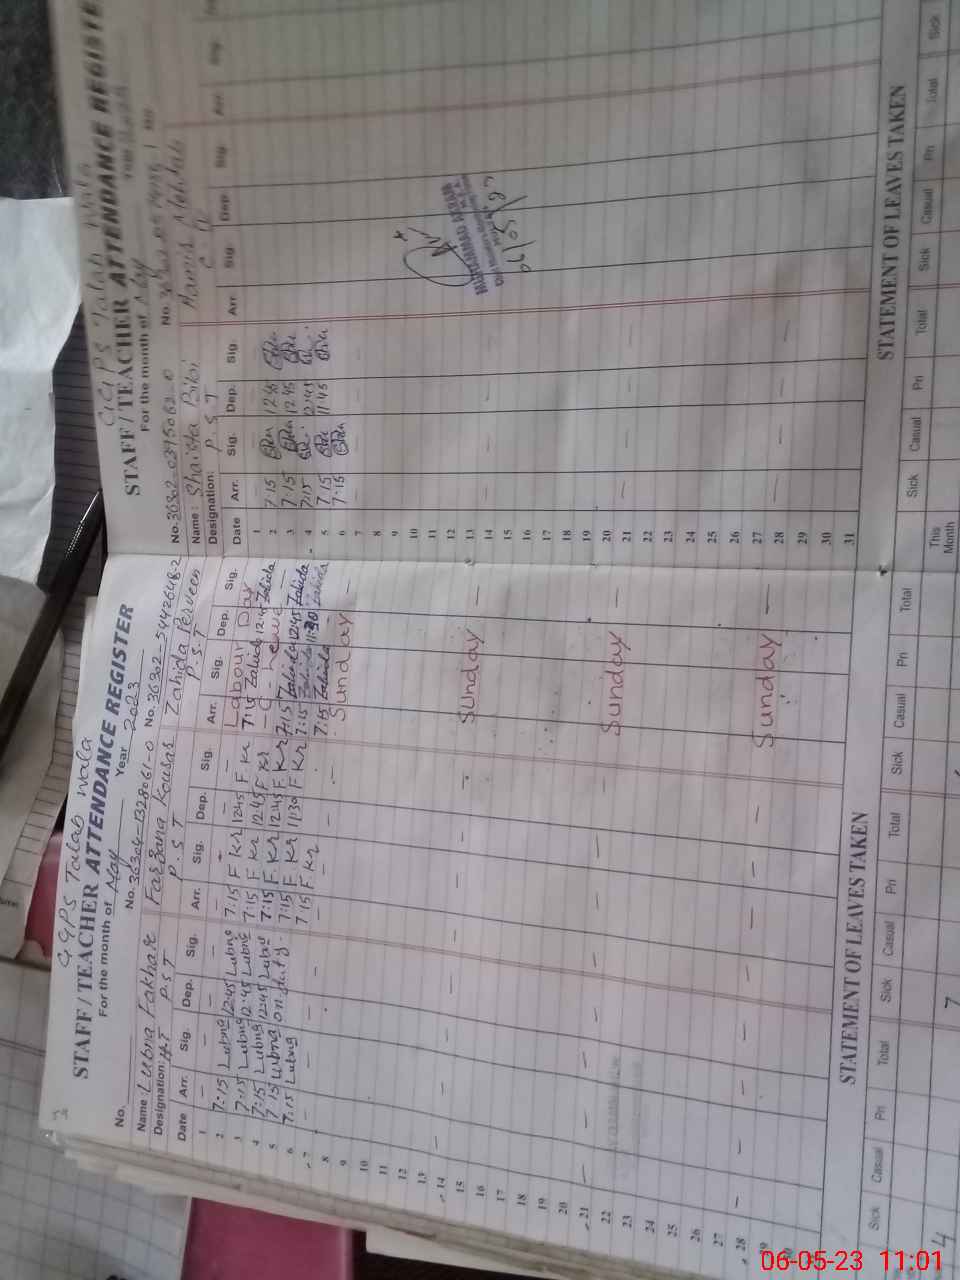 GGPS Talab wala
STAFF / TEACHER ATTENDANCE REGISTER
For the month of May Year 2023
No. No. 36304-1328061-0 No. 36302-5442648-2
Name: Lubna Fakhar Farzana Kousar Zahida Perveen
Designation: H.T P.S.T P.S.T P.S.T
Date Arr. Sig. Dep. Sig. Arr. Sig. Dep. Sig. Arr. Sig. Dep. Sig.
1 – – – – – – – – Labour Day
2 7:15 Lubna 12:45 Lubna 7:15 F Kr 12:45 F Kr 7:15 Zahida 12:45 Zahida
3 7:15 Lubna 12:45 Lubna 7:15 F Kr 12:45 F Kr – C – Leave –
4 7:15 Lubna 12:45 Lubna 7:15 F. Kr 12:45 F. Kr 7:15 Zahida 12:45 Zahida
5 7:15 Lubna on duty. 7:15 F. Kr 11:30 F. Kr 7:15 Zahida 11:30 Zahida
6 7:15 Lubna 7:15 F. Kr 7:15 Zahida
7 – – – – – – – – Sunday –
8
9
10
11
12
13
14 – – – – Sunday –
15
16
17
18
19
20
21 – – – – Sunday –
22
23
24
25
26
27
28 – – – – Sunday –
29
30
STATEMENT OF LEAVES TAKEN
Sick Casual Pri Total Sick Casual Pri Total Sick Casual Pri Total
4 7
GGPS Talab wala
STAFF / TEACHER ATTENDANCE REGISTE
For the month of May
No. 36302-0395062-0 No.
Name: Shaista Bibi
Designation: P.S.T
Date Arr. Sig. Dep. Sig. Arr. Sig. Dep. Sig. Arr. Sig.
1
2 7:15 12:45
3 7:15 12:45
4 7:15 12:45
5 7:15 11:45
6 7:15
7
8
9
10
11
12
13
14
15
16
17
18
19
20
21
22
23
24
25
26
27
28
29
30
31
MUHAMMAD
06/05/23
STATEMENT OF LEAVES TAKEN
Sick Casual Pri Total Sick Casual Pri Total Sick
This Month
06-05-23 11:01